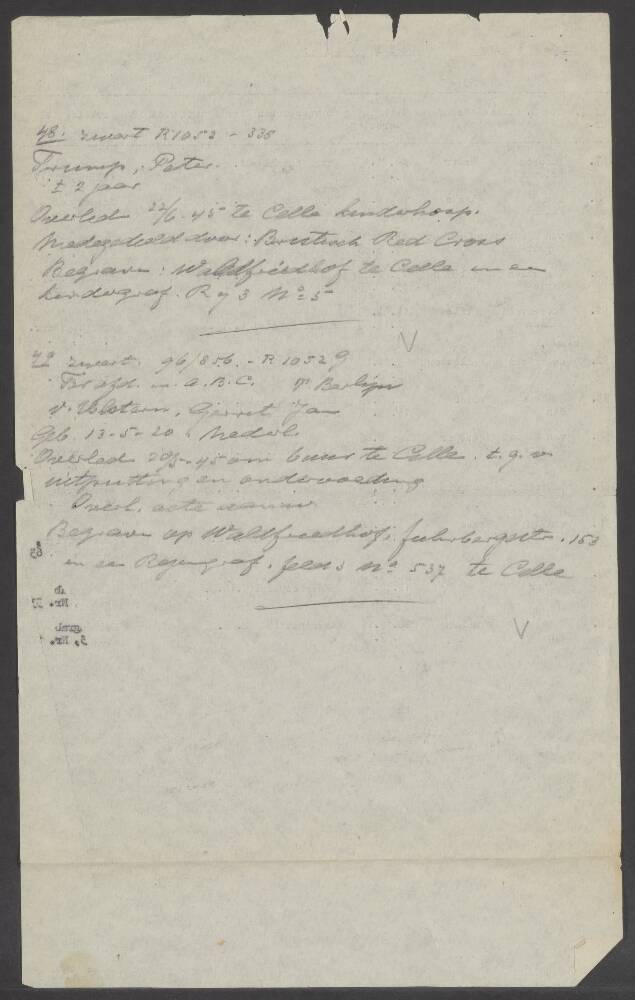 48. zwart R1052 - 338
Trump, Peter.
± 2 jaar
Overleden 22/6-45 te Celle kinderhosp.
Medegedeeld door: Britisch Red Cross
Begraven: Waldfriedhof te Celle in een
kindergraf. Rij 3 No 5
V
49 zwart. 96/856. - R 1052 9
A.B.C. Berlijn
Gerrit Jan
Geb. 13-5-20. Nederl.
Overleden -45 om uur te Celle. t.g.v.
uitputting en ondervoeding
Overl. acte aanw.
Begraven op Waldfriedhof, Fuhrbergstr. 153
in een Reihengraf. feld 3 No 537 te Celle
V